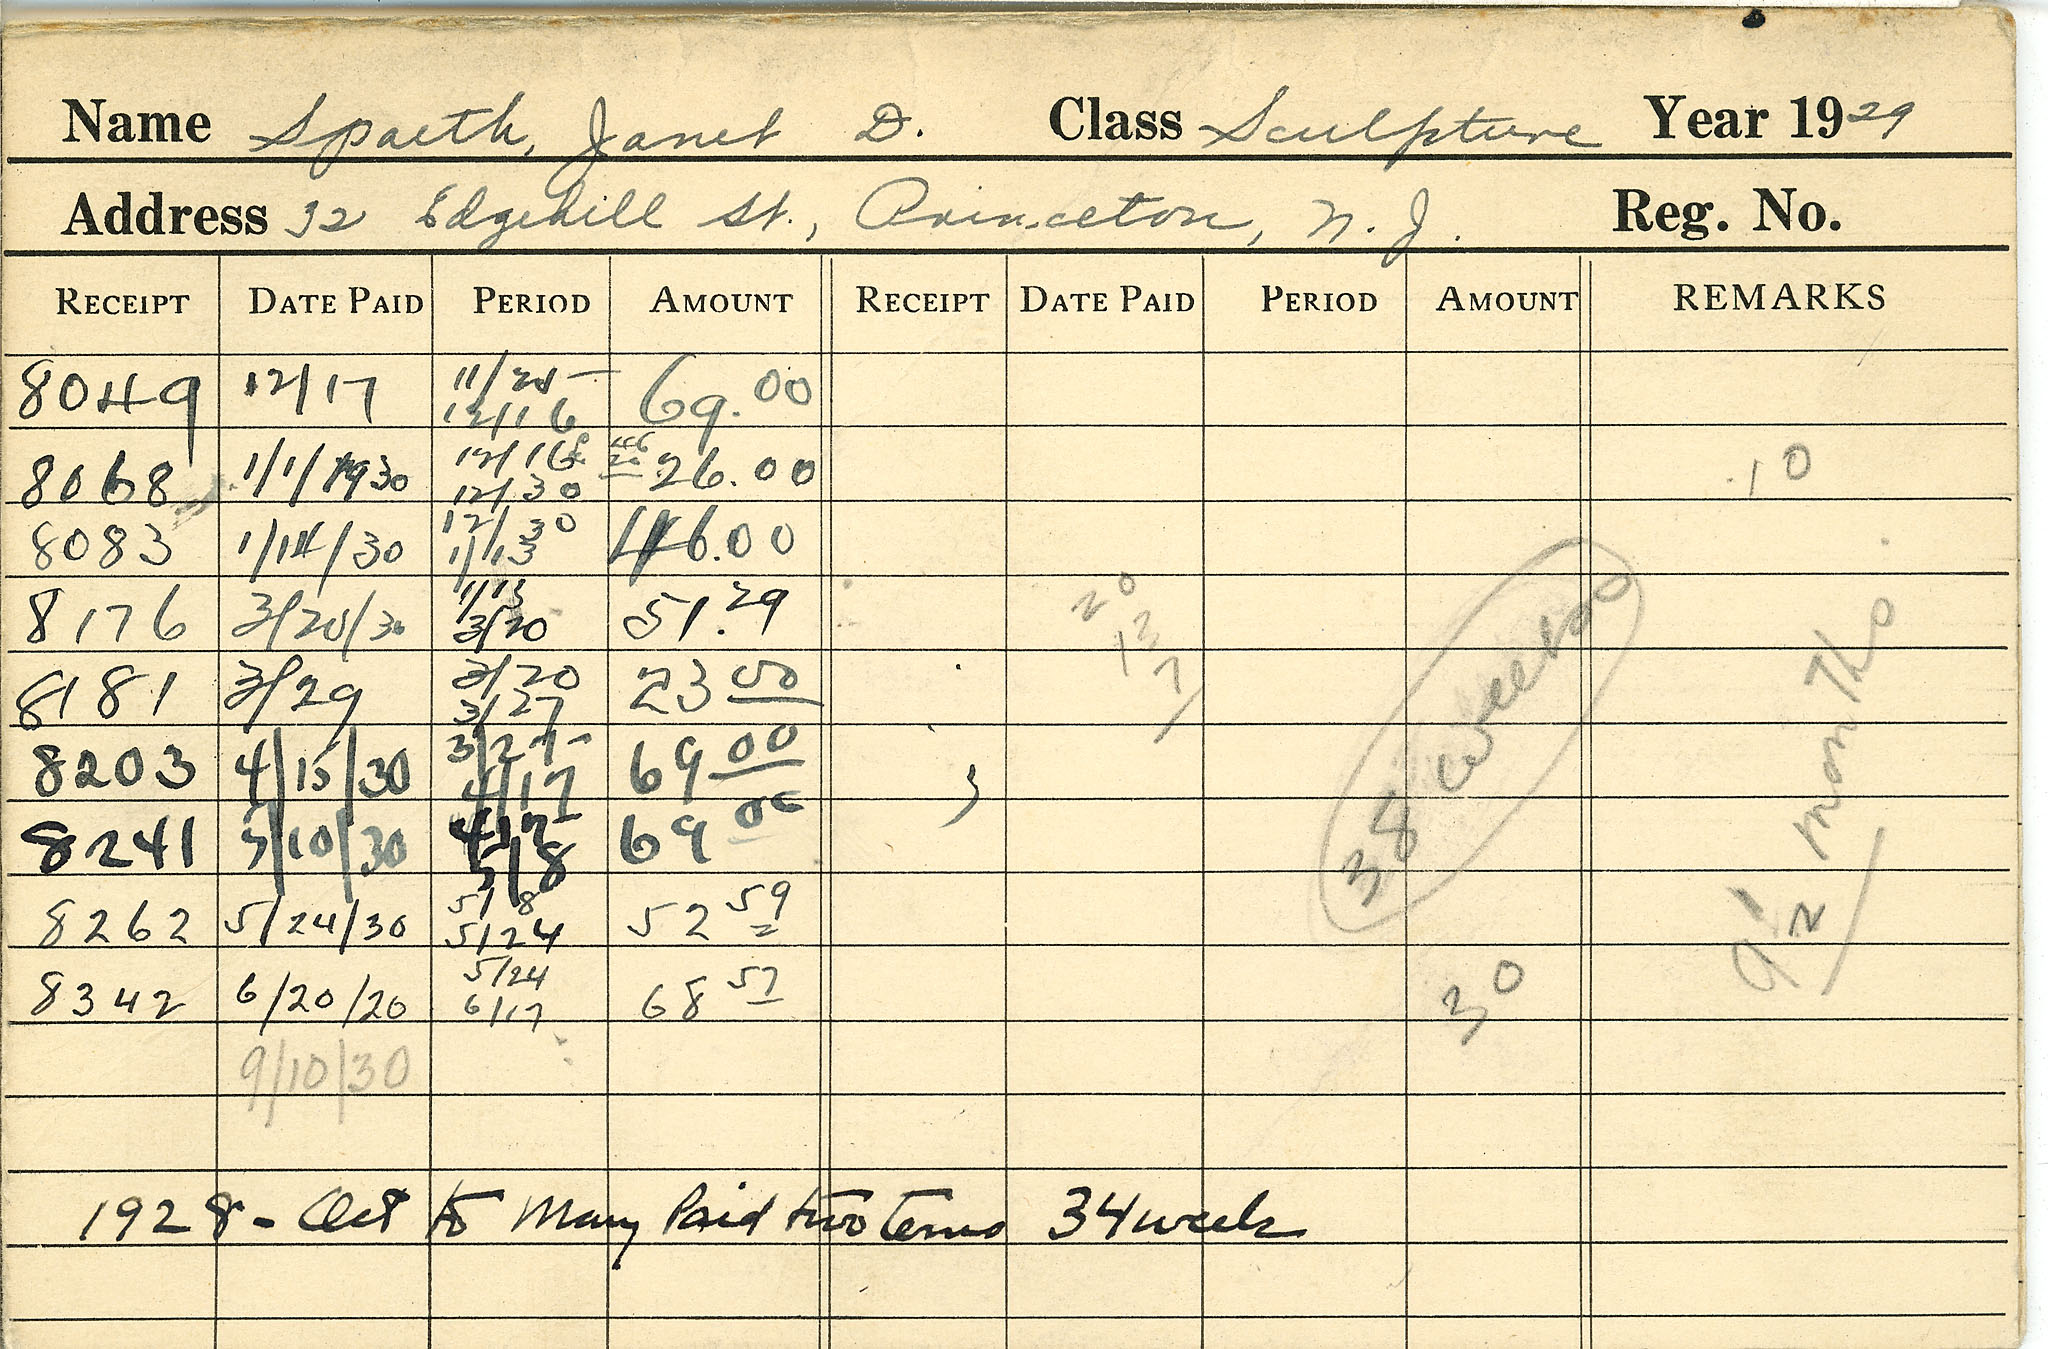 Name Spaeth, Janet D. Class Sculpture Year 1929
Address 32 Edgehill St., Princeton, N. J. Reg. No.
RECEIPT DATE PAID PERIOD AMOUNT RECEIPT DATE PAID PERIOD AMOUNT REMARKS
8049 12/17 11/25- 12/16 69.00
8068 1/1/1930 12/16 12/30 26.00 10
8083 1/14/30 12/30 1/13 46.00
8176 3/20/30 1/13 3/20 51.29
8181 3/29 3/20 3/27 23 00
8203 4/15/30 3/27- 4/17 69 00
8241 5/10/30 4/17 5/8 69 00
8262 5/24/30 5/8 5/24 52 59
8342 6/20/20 5/24 6/17 68 57
9/10/30
20
13
7
38 weeks
30
9 1/2 months
1928 - Oct to May Paid two Terms 34 weeks